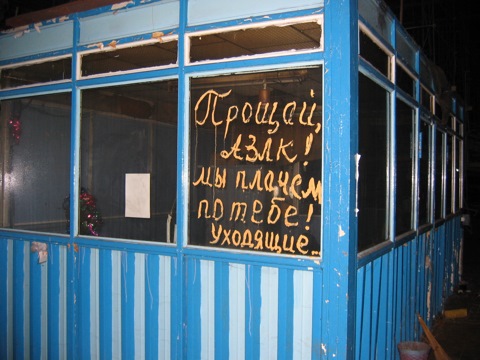 Прощай,
АЗЛК!
мы плачем
по тебе!
Уходящие...